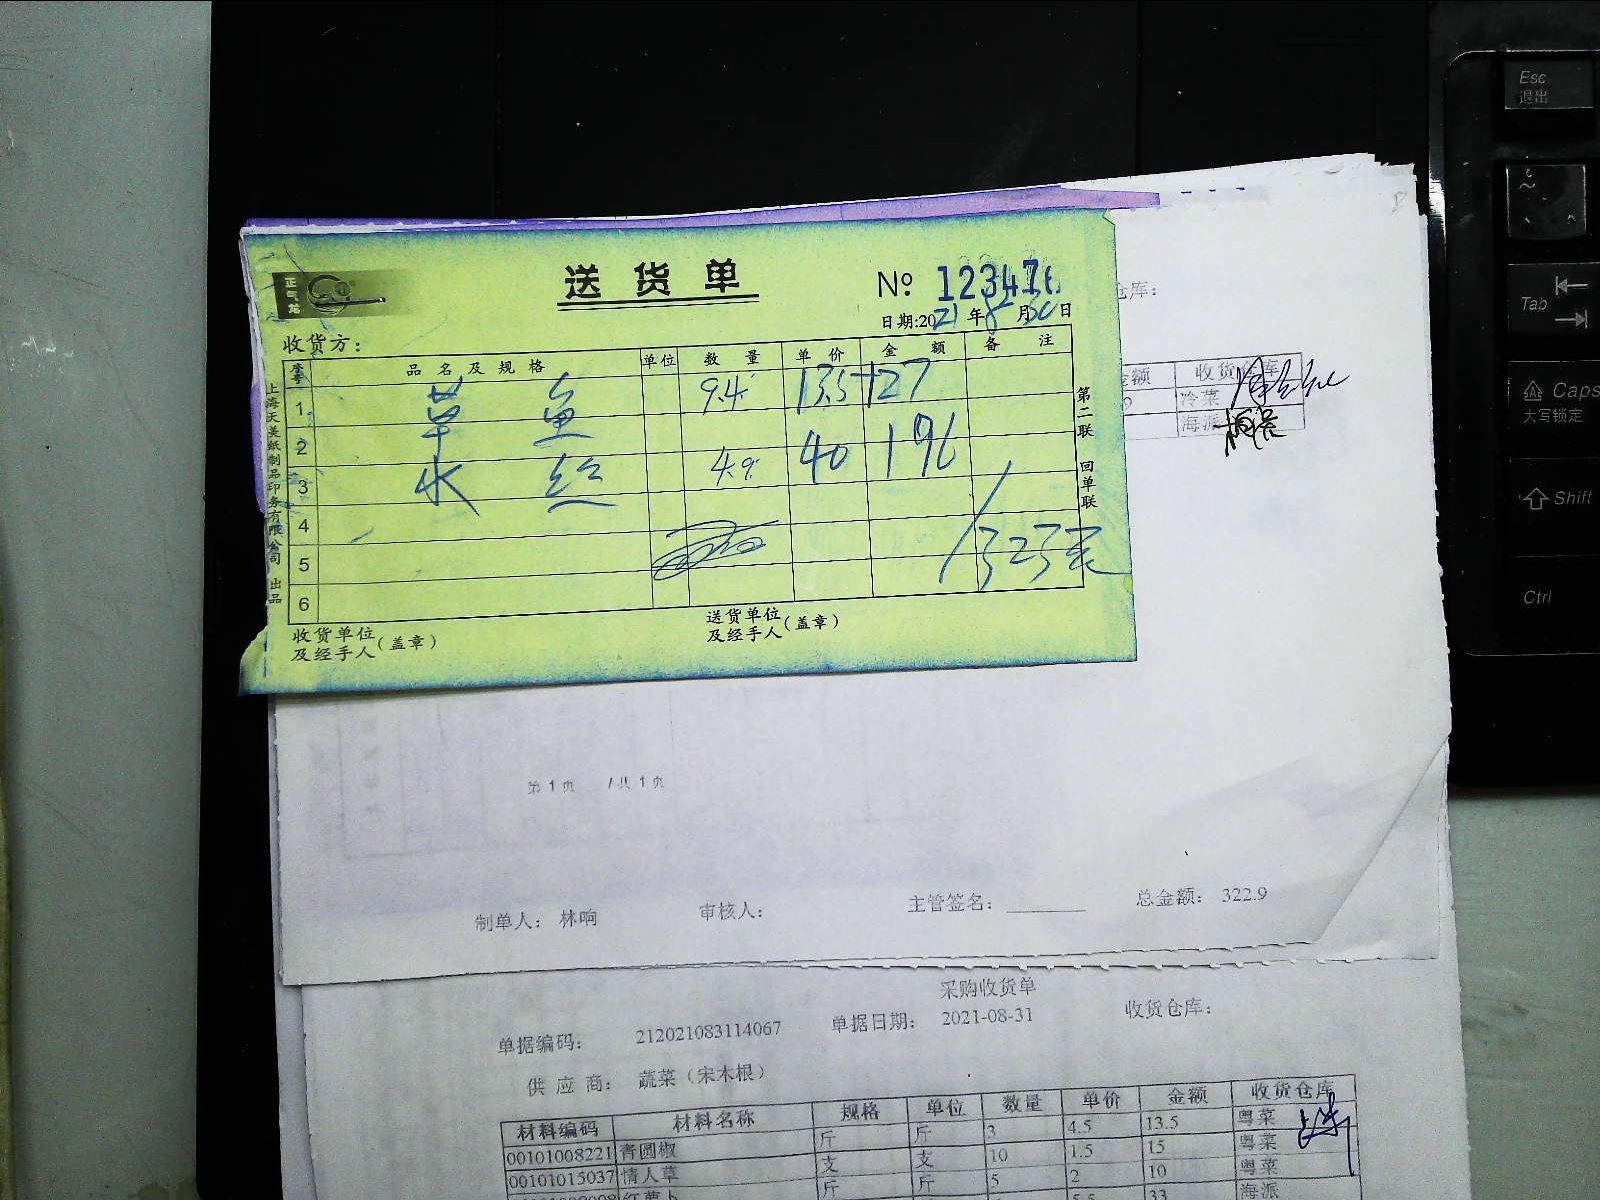 送货单
正气龙
№ 123476
日期:2021年8月30日
收货方:
序号 品名及规格 单位 数量 单价 金额 备注
1 草鱼 9.4 13.5 127
2
3 水 4.9 40 196
4
5 323元
6
收货单位及经手人(盖章)
送货单位及经手人(盖章)
上海天美纸制品印务有限公司 出品
第二联 回单联
仓库:
金额 收货仓库
9 冷菜
海派
第1页 /共1页
制单人: 林响 审核人: 主管签名: 总金额: 322.9
采购收货单
单据编码: 212021083114067 单据日期: 2021-08-31 收货仓库:
供应商: 蔬菜(宋木根)
材料编码 材料名称 规格 单位 数量 单价 金额 收货仓库
00101008221 青圆椒 斤 斤 3 4.5 13.5 粤菜
00101015037 情人草 支 支 10 1.5 15 粤菜
红萝卜 斤 斤 5 2 10 粤菜
33 海派
Esc
退出
~
Tab
Caps
大写锁定
Shift
Ctrl